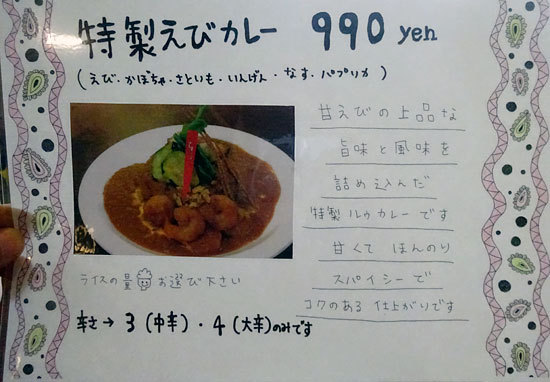 特製えびカレー 990 yen
(えび・かぼちゃ・さといも・いんげん・なす・パプリカ)
甘えびの上品な
旨味と風味を
詰め込んだ
特製ルゥカレーです
甘くて ほんのり
スパイシーで
コクのある 仕上がりです
ライスの量 お選び下さい
辛さ→3(中辛)・4(大辛)のみです